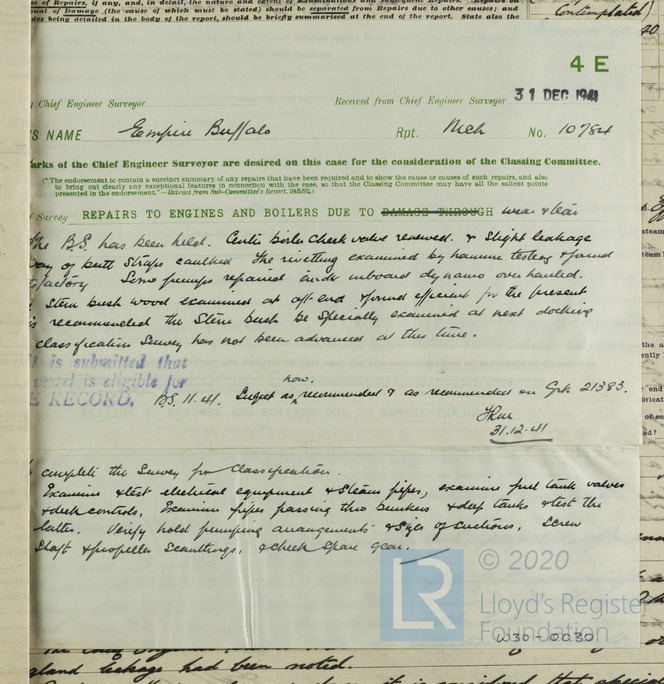 of Repairs, if any, and, in detail, the nature and extent of Examinations and subsequent Repairs. Repairs on
ount of Damage (the cause of which must be stated) should be separated from Repairs due to other causes; and
des being detailed in the body of the report, should be briefly summarised at the end of the report. State also the
Contemplated)
4 E
y Chief Engineer Surveyor
Received from Chief Engineer Surveyor 31 DEC 1941
'S NAME Empire Buffalo Rpt. Mch No. 10784
arks of the Chief Engineer Surveyor are desired on this case for the consideration of the Classing Committee.
("The endorsement to contain a succinct summary of any repairs that have been required and to show the cause or causes of such repairs, and also
to bring out clearly any exceptional features in connection with the case, so that the Classing Committee may have all the salient points
presented in the endorsement."—Extract from Sub-Committee's Report, 24/5/92.)
of Survey REPAIRS TO ENGINES AND BOILERS DUE TO DAMAGE THROUGH wear & tear
The B.S. has been held. Centre boiler check valve renewed. & slight leakage
way of butt straps caulked the rivetting examined by hammer testing & found
tisfactory Some pumps repaired inboard dynamo overhauled.
Stern bush wood examined at aft end & found efficient for the present
is recommended the Stern bush be specially examined at next docking
classification Survey has not been advanced at this time.
It is submitted that
vessel is eligible for
E RECORD. B.S. 11.41. Subject as now recommended & as recommended on Grk 21383.
31.12.41
complete the Survey for Classification.
Examine & test electrical equipment & steam pipes, examine fuel tank valves
& deck controls, Examine pipes passing thro bunkers & deep tanks & test the
latter. Verify hold pumping arrangements & sizes of suctions, Screw
Shaft & propeller Scantlings, & check Spare Gear.
LR
© 2020
Lloyd's Register
Foundation
W30-0030
gland leakage had been noted.
it is considered that special